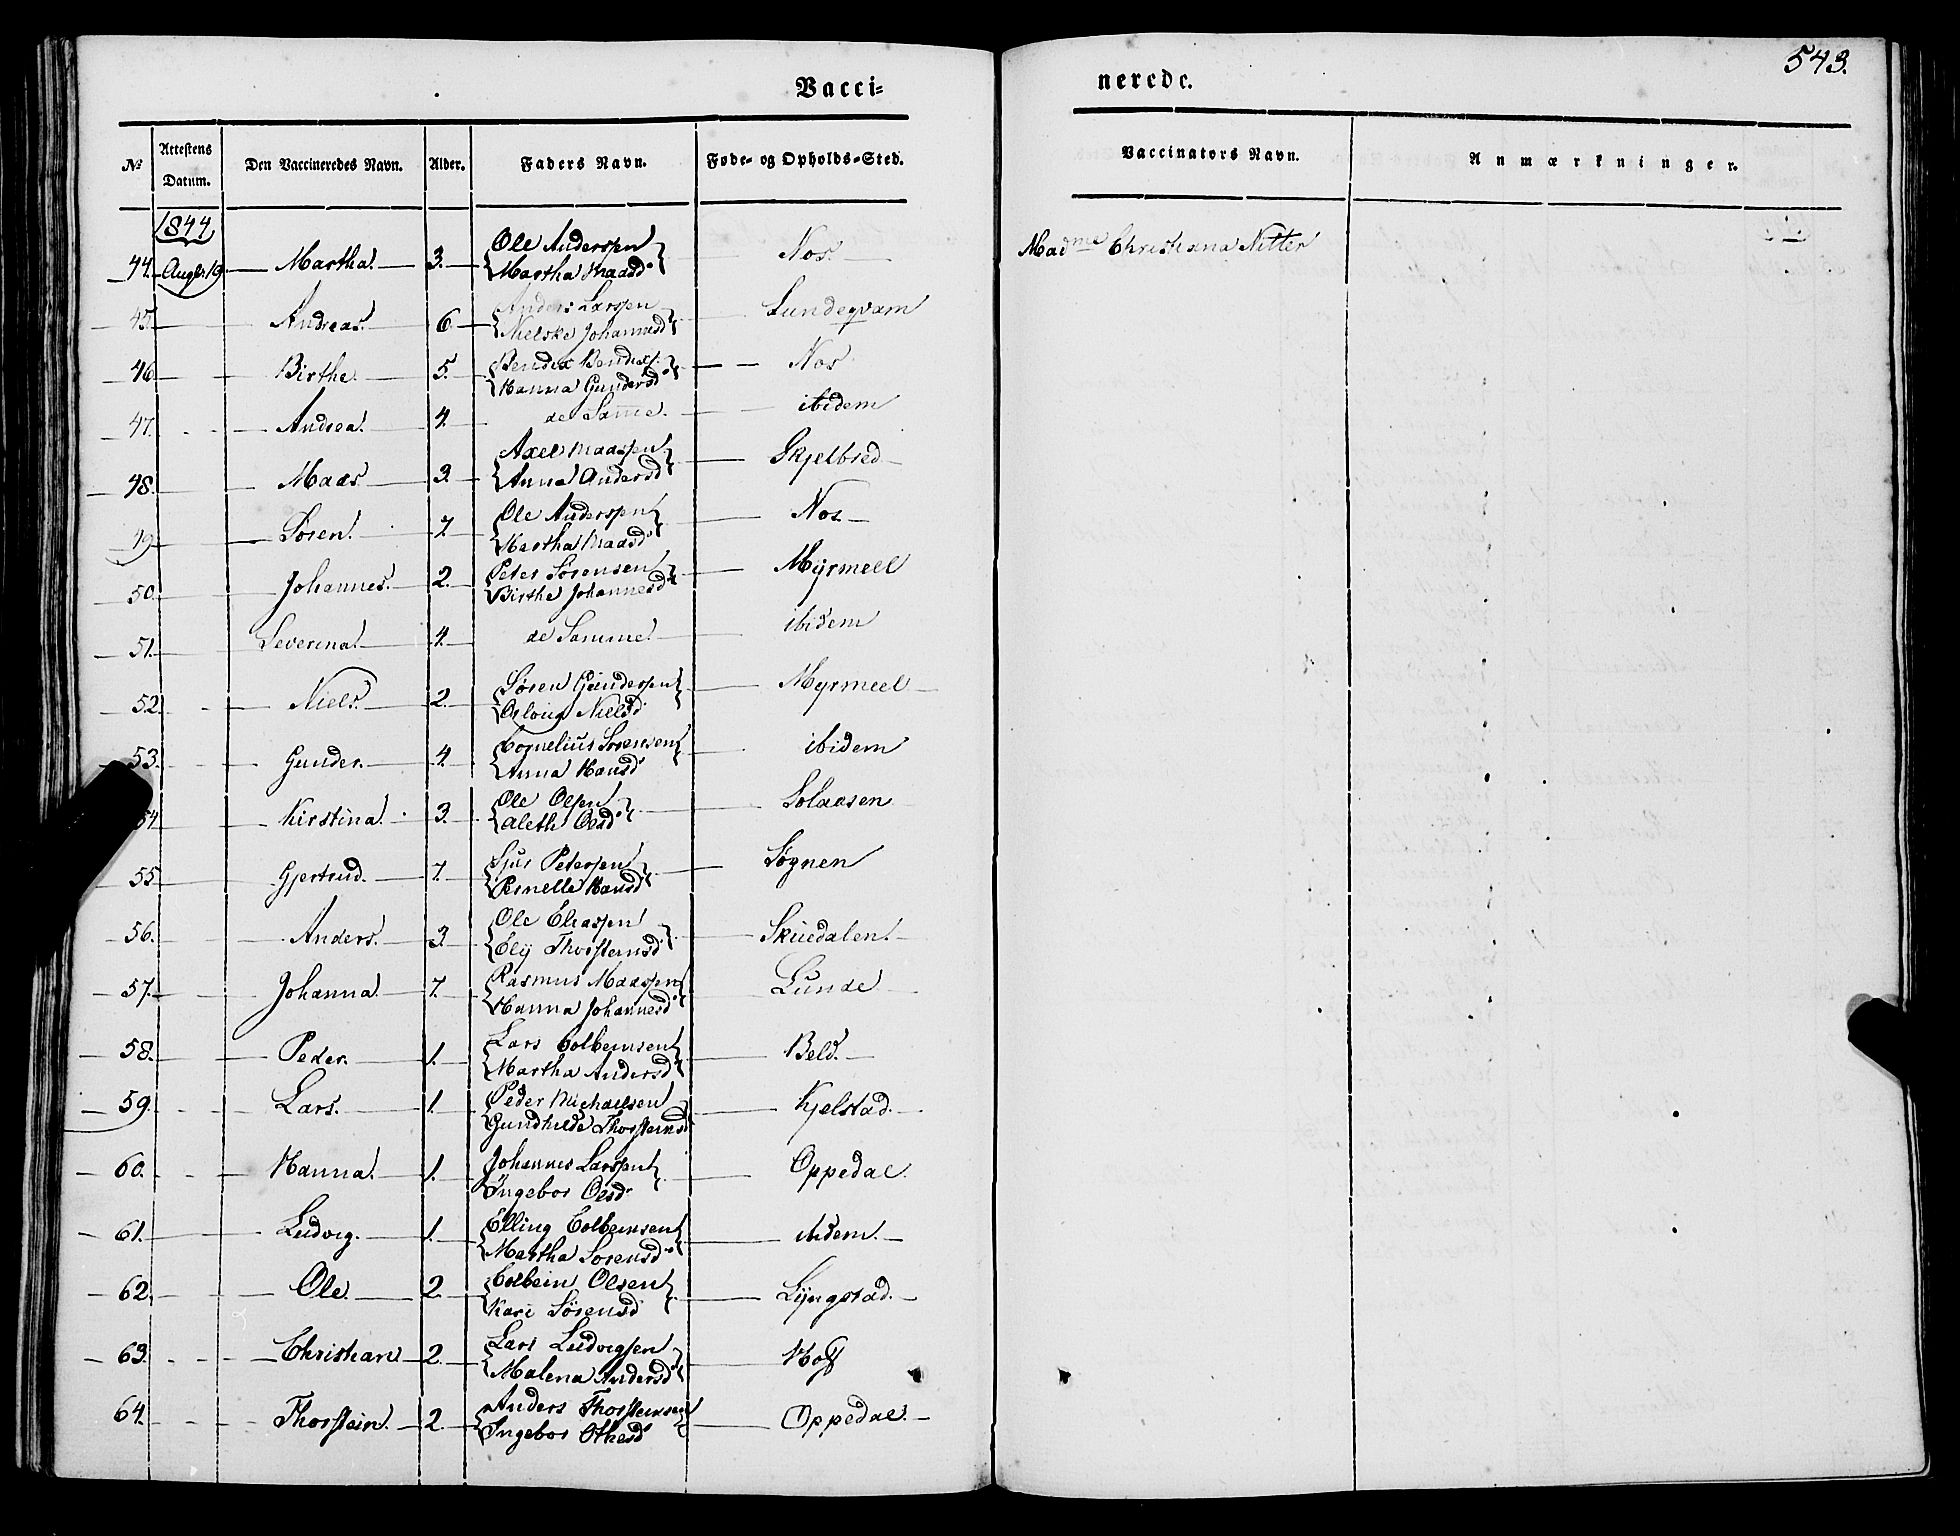 543.
Vacci-
nerede.
No
Attestens Datum.
Den Vaccineredes Navn.
Alder.
Faders Navn.
Føde- og Opholds-Sted.
Vaccinators Navn.
Anmærkninger.
1844
Ole Anderssen
44. Augst. 10 Martha. 3. Martha Maasd Nos. Madme Christiana Nitter
Anders Larssen
45. Andreas. 6. Nielske Johannesd Lundeqvam
Bendix Bendixs.
46. Birthe. 5. Hanna Gundersd Nos
47. Andrea. 4. de Samme. ibidem
Axel Maassen
48. Maas. 3. Anna Andersd Skjelbred
Ole Anderssen
49. Søren. 7. Martha Maasd Nos
Peter Sørensen
50. Johannes. 2. Birthe Johannesd Myrmeel
51. Severina. 4. de Samme. ibidem
Søren Gunderssen
52. Niels. 2. Nielsd Myrmeel
Cornelius Sørensen
53. Gunder. 4. Anna Hansd ibidem
Ole Olsen
54. Kirstina. 3. Aleth Olsd Solaasen
Sjur Peterssen
55. Gjertrud. 7. Pernelle Hansd Søgnen
Ole Eliassen
56. Anders. 3. Ely Thorsteinsd Skuedalen.
Rasmus Maassen
57. Johanna. 7. Hanna Johannesd Lunde
Lars Colbeinsen
58. Peder. 1. Martha Andersd Beld.
Peder Michaelsen
59. Lars. 1. Gundhilde Thorsteinsd Kjelstad.
Johannes Larssen
60. Hanna. 1. Ingebor Olsd Oppedal.
Elling Colbeinsen
61. Ludvig. 1. Martha Sørensd ibidem.
Colbein Olsen
62. Ole. 2. Kari Sørensd Lyngstad.
Lars Ludvigsen
63. Christian 2. Malena Andersd Hoff
Anders Thorsteinsen
64. Thorstein. 2. Ingebor Othesd Oppedal.